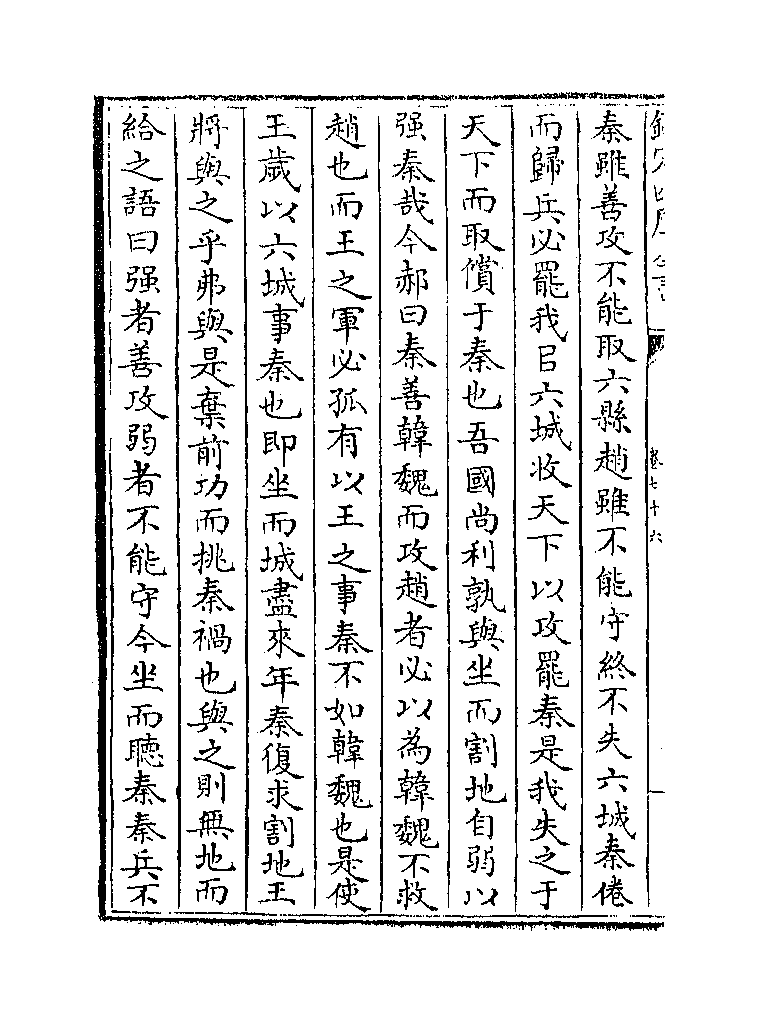 秦雖善攻不能取六縣趙雖不能守終不失六城秦倦
而歸兵必罷我㠯六城收天下以攻罷秦是我失之于
天下而取償于秦也吾國尚利孰與坐而割地自弱以
强秦哉今郝曰秦善韓魏而攻趙者必以為韓魏不救
趙也而王之軍必孤有以王之事秦不如韓魏也是使
王歲以六城事秦也即坐而城盡來年秦復求割地王
將與之乎弗與是棄前功而挑秦禍也與之則無地而
給之語曰强者善攻弱者不能守今坐而聽秦秦兵不
卷七十六